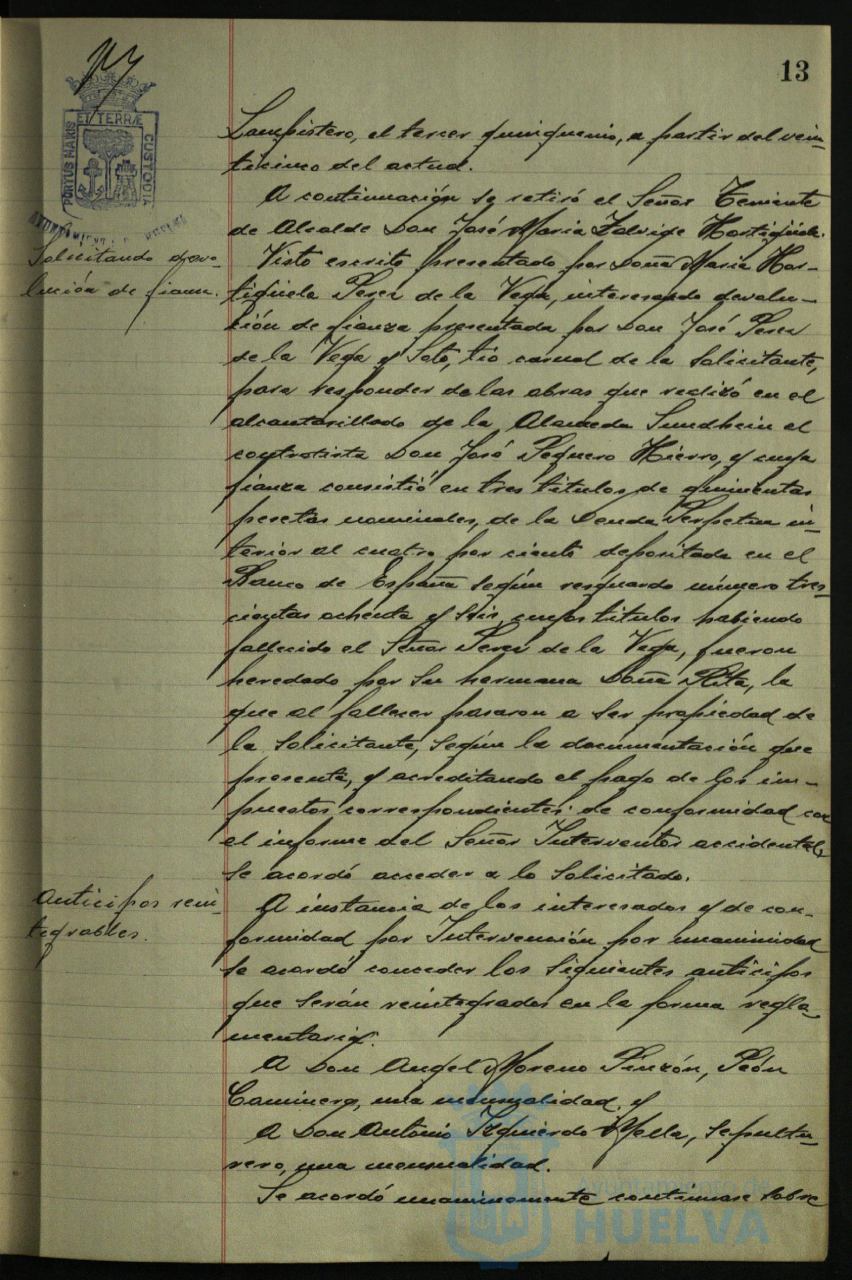 13
PORTUS MARIS
ET TERRÆ
CUSTODIA
AYUNTAMIENTO HUELVA
Lampistero, el tercer quinquenio, a partir del vein-
ticinco del actual.
A continuación se retiró el Señor Teniente
de Alcalde Don José Maria Hortigüela.
Solicitando devo-
lución de fianza.
Visto escrito presentado por Doña Maria Hor-
tigüela Perez de la Vega, interesando devolu-
ción de fianza presentada por Don José Perez
de la Vega y Soto, tio carnal de la solicitante,
para responder de las obras que realizó en el
alcantarillado de la Alameda Sundhein el
contratista Don José Peguero Hierro, y cuya
fianza consistió en tres titulos de quinientas
pesetas nominales, de la Deuda Perpetua in-
terior al cuatro por ciento depositada en el
Banco de España según resguardo número tres-
cientos ochenta y seis, cuyos titulos habiendo
fallecido el Señor Perez de la Vega, fueron
heredado por su hermana Doña Rita, la
que al fallecer pasaron a ser propiedad de
la solicitante, según la documentación que
presenta, y acreditando el pago de los im-
puestos correspondientes: de conformidad con
el informe del Señor Interventor accidental,
se acordó acceder a lo solicitado.
Anticipos rein-
tegrables.
A instancia de los interesados y de con-
formidad por Intervención por unanimidad
se acordó conceder los siguientes anticipos
que serán reintegrados en la forma regla-
mentaria.
A Don Angel Moreno Pinzón, Peón
Caminero, una mensualidad, y
A Don Antonio Izquierdo Mella, sepultu-
rero, una mensualidad.
Se acordó unanimemente continuase sobre
Ayuntamiento de
HUELVA